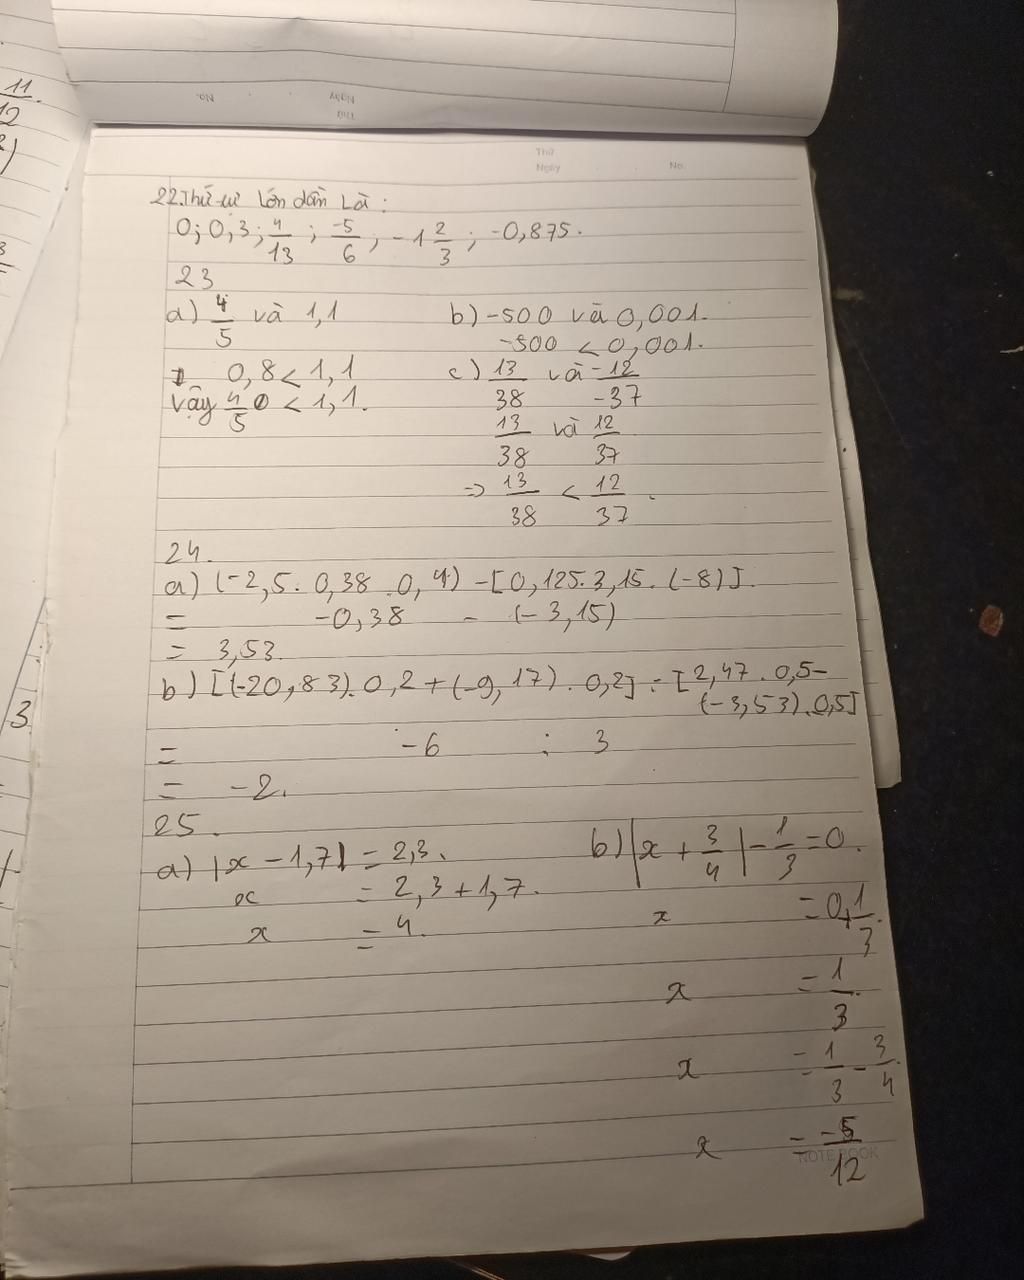 11
12
No.
Ngày
Thứ
Thứ
Ngày No.
22. Thứ tự lớn dần là:
0; 0,3; 4/13; -5/6; -1 2/3; -0,875.
23
a) 4/5 và 1,1
0,8 < 1,1
Vậy 4/5 < 1,1.
b) -500 và 0,001.
-500 < 0,001.
c) 13/38 và -12/-37
13/38 và 12/37
=> 13/38 < 12/37.
24.
a) (-2,5. 0,38. 0,4) - [0,125. 3,15. (-8)].
= -0,38 - (-3,15)
= 3,53.
b) [(-20,83). 0,2 + (-9,17). 0,2] : [2,47. 0,5 -
(-3,53). 0,5]
= -6 : 3
= -2.
25.
a) |x - 1,7| = 2,3.
x = 2,3 + 1,7.
x = 4.
b) |x + 3/4| - 1/3 = 0.
x = 0 + 1/3.
x = 1/3
x = 1/3 - 3/4.
x = -5/12
NOTEBOOK
3